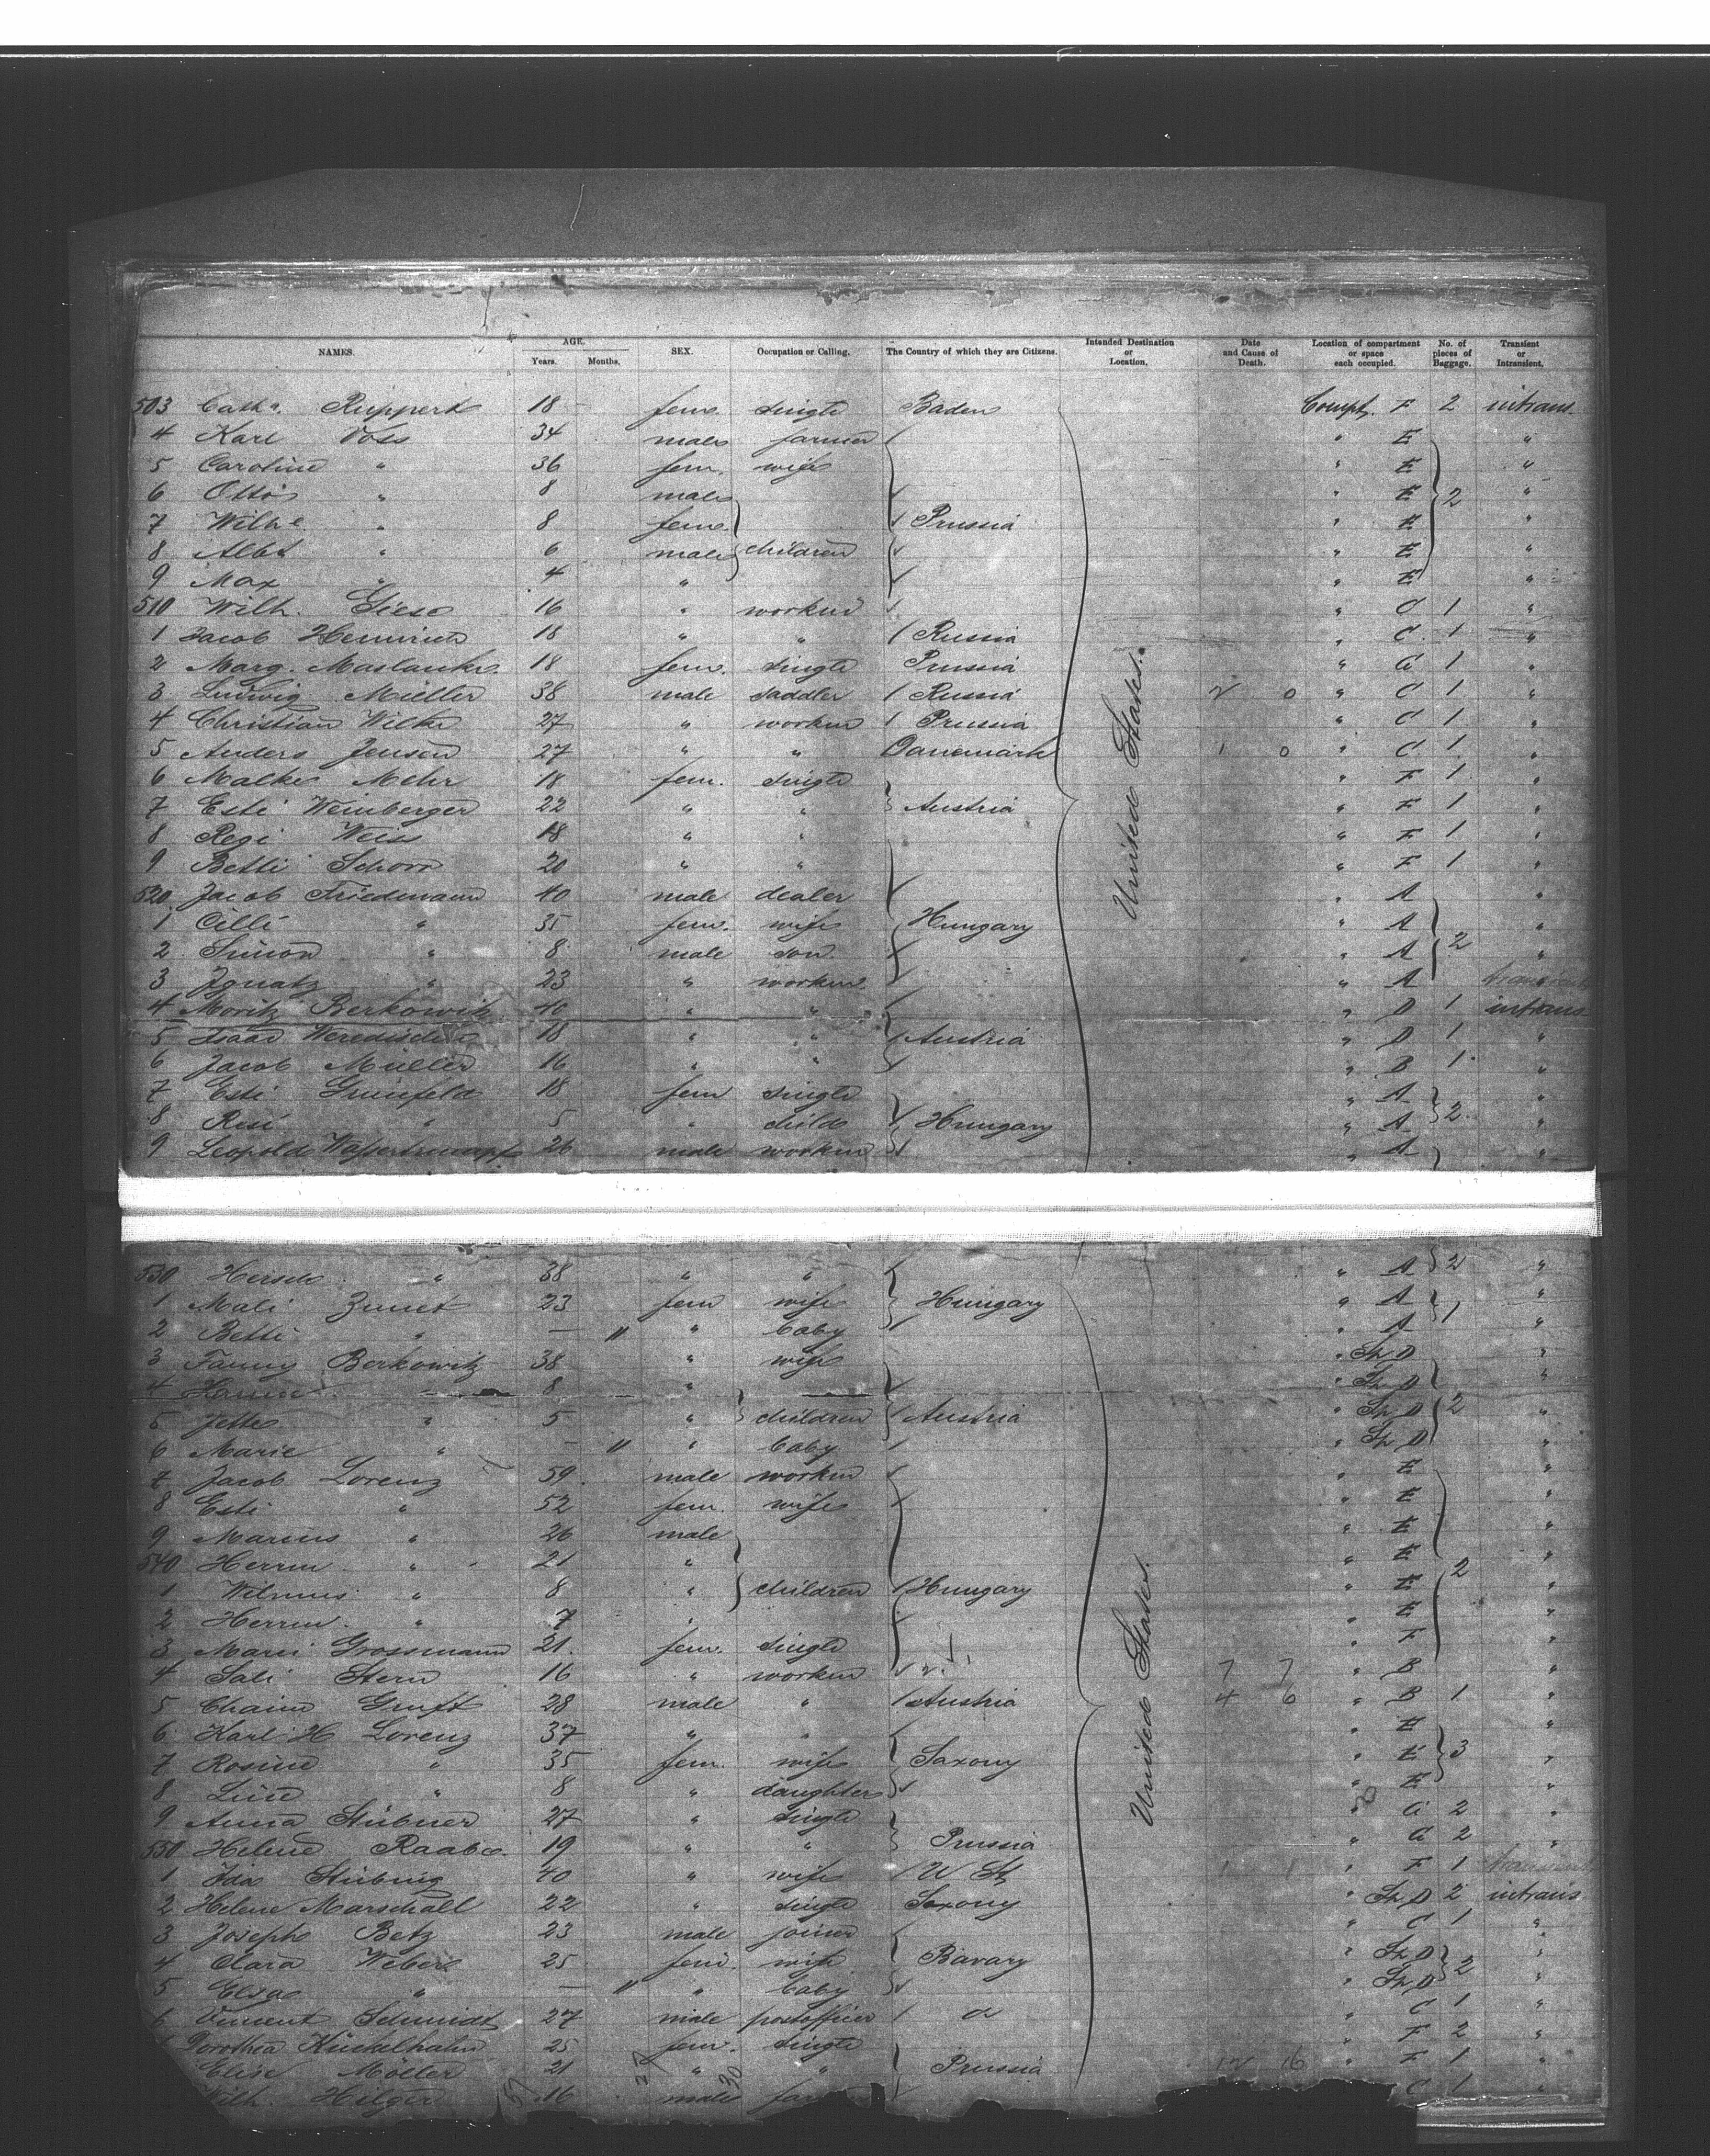 NAMES. AGE. Years. Months. SEX. Occupation or Calling. The Country of which they are Citizens. Intended Destination or Location. Date and Cause of Death. Location of compartment or space each occupied. No. of pieces of Baggage. Transient or Intransient.
503 Cath. Ruppert 18 fem. single Baden Compt. F 2 intrans.
4 Karl Voss 34 male farmer " E "
5 Caroline " 36 fem. wife " E "
6 Otto " 8 male " E 2 "
7 Wilhe " 8 fem. Prussia " E "
8 Albt " 6 male children " E "
9 Max " 4 " " E "
510 Wilh. Giese 16 " worker " C 1 "
1 Jacob 18 " " Russia " C 1 "
2 Marg. Maslanka 18 fem. single Prussia " G 1 "
3 Ludwig Müller 38 male saddler Russia 2 0 " C 1 "
4 Christian Wilke 27 " workm Prussia " C 1 "
5 Anders Jensen 27 " " Danemark 1 0 " C 1 "
6 Malke Mehr 18 fem. single " F 1 "
7 Esti Weinberger 22 " " Austria " F 1 "
8 Regi Weiss 18 " " " F 1 "
9 Betti Schorr 20 " " " F 1 "
520 Jacob Friedmann 40 male dealer " A "
1 Cilli " 35 fem. wife Hungary " A "
2 Simon " 8 male son " A 2 "
3 Ignatz " 23 " workm. " A transient
4 Moritz Berkowitz 40 " " " D 1 intrans
5 Isaac 18 " " Austria " D 1 "
6 Jacob Müller 16 " " " B 1 "
7 Esti Grünfeld 18 fem single " A "
8 Resi " 5 " child Hungary " A 2 "
9 Leopold Wassertrumpf 26 male workm " A "
United States.
530 Hersch " 38 " " " A 2 "
1 Mali 23 fem wife Hungary " A 1 "
2 Betti " — 11 " baby " A "
3 Fanny Berkowitz 38 " wife " St D "
4 Hanne " 8 " " St D "
5 Jette " 5 " children Austria " St D 2 "
6 Marie " — 11 " baby " St D "
7 Jacob Lorenz 59 male workm " E "
8 Esti " 52 fem. wife " E "
9 Marius " 26 male " E "
540 Herm " 21 " " E 2 "
1 " 8 " children Hungary " E "
2 Herm. " 7 " " E "
3 Mari Grossmann 21 fem. single " F "
4 Sali Stern 16 " workm 7 7 " B "
5 Chaim Gruft 28 male " Austria 4 6 " B 1 "
6 Karl H Lorenz 37 " " " E "
7 Rosine " 35 fem. wife Saxony " E 3 "
8 Line " 8 " daughter " E "
9 Anna Stübner 27 " single " G 2 "
550 Helene Raabe. 19 " " Prussia " G 2 "
1 Ida Stübnig 40 " wife U St 1 1 " F 1 transient
2 Helene Marschall 22 " single Saxony " St D 2 intrans
3 Joseph Betz 23 male joiner " C 1 "
4 Clara Weber 25 fem. wife Bavary " St D 2 "
5 Elsa " — 11 " baby " St D "
6 Vincent Schmidt 27 male postofficer do " C 1 "
Dorothea Künkelhahn 25 fem. single " F 2 "
Elise Möller 21 " " Prussia 12 16 " F 1 "
Wilh. Hilger 16 male C 1 "
United States.